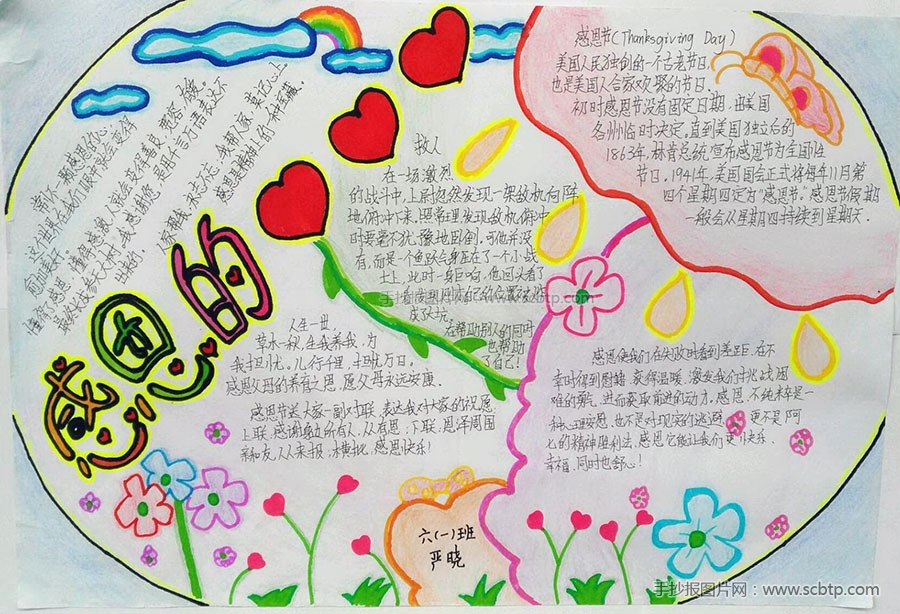 感恩的心
感恩节(Thanksgiving Day)
美国人民独创的一个古老节日,
也是美国人合家欢聚的节日.
初时感恩节没有固定日期,由美国
各州临时决定,直到美国独立后的
1863年,林肯总统宣布感恩节为全国性
节日.1941年,美国国会正式将每年11月第
四个星期四定为“感恩节”.感恩节假期
一般会从星期四持续到星期天.
救人
在一场激烈
的战斗中,上尉忽然发现一架敌机向阵
地俯冲下来.照常理,发现敌机俯冲
时要毫不犹豫地卧倒.可他并没
有,而是一个鱼跃飞身压在了一个小战
士上,此时一身巨响,他回头看了
在帮助别人的同时
也帮助
了自己!
人生一世,
草木一秋,生我养我,为
我担忧.儿行千里,担忧万日.
感恩父母的养育之恩,愿父母永远安康.
感恩节送大家一副对联,表达我对大家的祝愿:
上联,感谢身边所有人,从有恩,下联:恩泽周围
亲和友,人人来报,横批,感恩快乐!
感恩使我们在失败时看到差距,在不
幸时得到慰籍,获得温暖,激发我们挑战困
难的勇气,进而获取前进的动力.感恩,不纯粹是一
种心理安慰,也不是对现实的逃避,更不是阿
Q的精神胜利法,感恩它能让我们更快乐,
幸福,同时也舒心!
六(一)班
严晓
手抄报图片网:www.scbtp.com